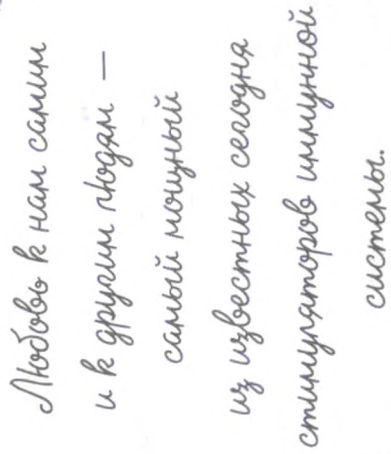 Любовь к нам самим
и к другим людям —
самый мощный
из известных сегодня
стимуляторов иммунной
системы.